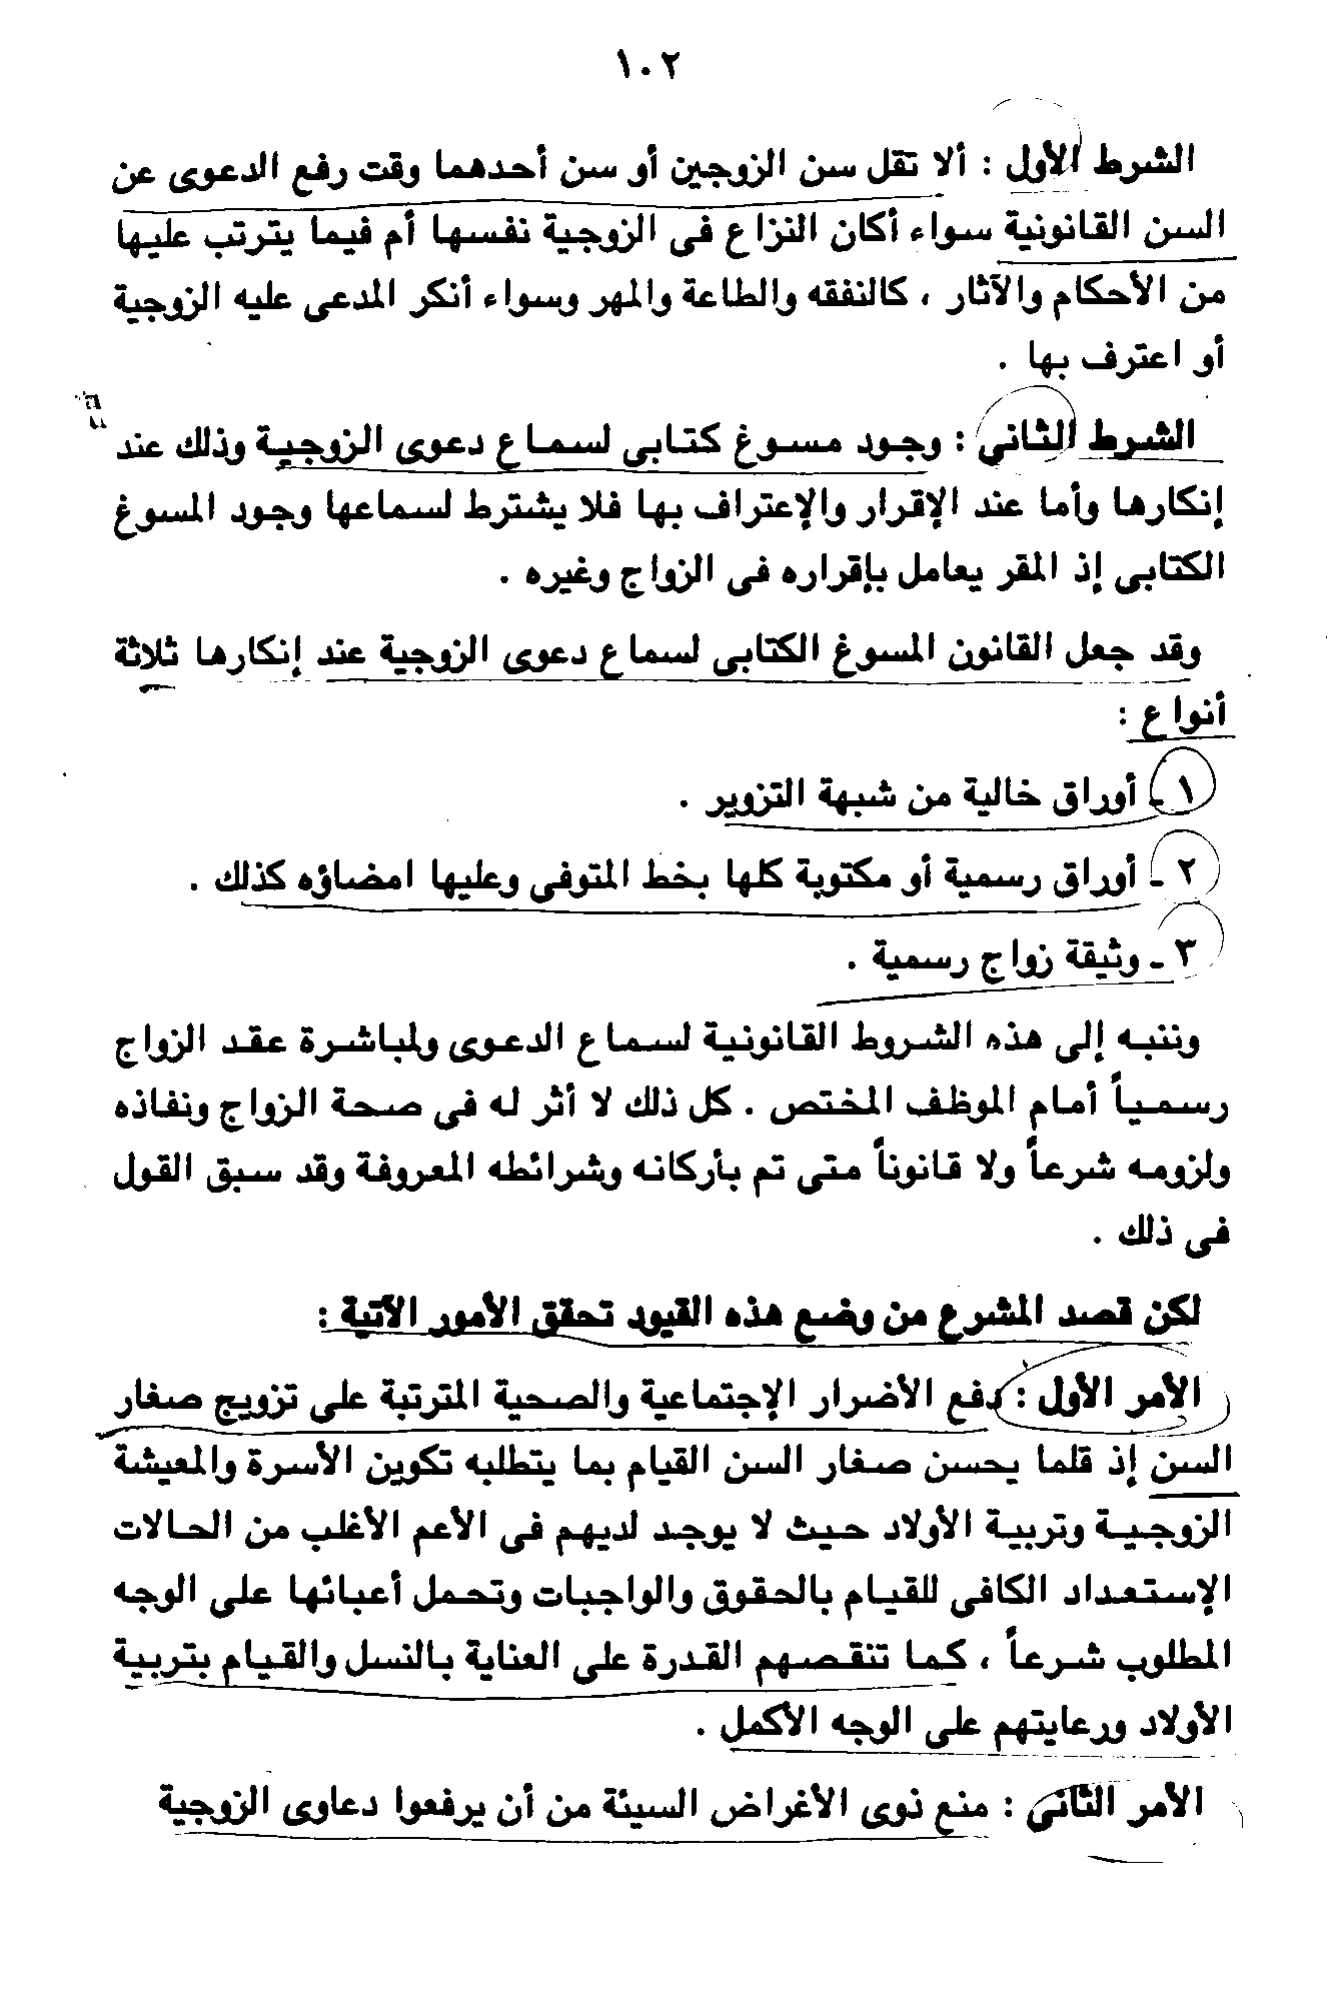 ١٠٢
الشرط الأول : ألا تقل سن الزوجين أو سن أحدهما وقت رفع الدعوى عن
السن القانونية سواء أكان النزاع فى الزوجية نفسها أم فيما يترتب عليها
من الأحكام والآثار ، كالنفقه والطاعة والمهر وسواء أنكر المدعى عليه الزوجية
أو اعترف بها .
الشرط الثانى : وجود مسوغ كتابى لسماع دعوى الزوجية وذلك عند
إنكارها وأما عند الإقرار والإعتراف بها فلا يشترط لسماعها وجود المسوغ
الكتابى إذ المقر يعامل بإقراره فى الزواج وغيره .
وقد جعل القانون المسوغ الكتابى لسماع دعوى الزوجية عند إنكارها ثلاثة
أنواع :
١ - أوراق خالية من شبهة التزوير .
٢ - أوراق رسمية أو مكتوبة كلها بخط المتوفى وعليها امضاؤه كذلك .
٣ - وثيقة زواج رسمية .
وننبه إلى هذه الشروط القانونية لسماع الدعوى ولمباشرة عقد الزواج
رسمياً أمام الموظف المختص . كل ذلك لا أثر له فى صحة الزواج ونفاذه
ولزومه شرعاً ولا قانوناً متى تم بأركانه وشرائطه المعروفة وقد سبق القول
فى ذلك .
لكن قصد المشرع من وضع هذه القيود تحقق الأمور الآتية :
الأمر الأول : دفع الأضرار الإجتماعية والصحية المترتبة على تزويج صغار
السن إذ قلما يحسن صغار السن القيام بما يتطلبه تكوين الأسرة والمعيشة
الزوجية وتربية الأولاد حيث لا يوجد لديهم فى الأعم الأغلب من الحالات
الإستعداد الكافى للقيام بالحقوق والواجبات وتحمل أعبائها على الوجه
المطلوب شرعاً ، كما تنقصهم القدرة على العناية بالنسل والقيام بتربية
الأولاد ورعايتهم على الوجه الأكمل .
الأمر الثانى : منع ذوى الأغراض السيئة من أن يرفعوا دعاوى الزوجية